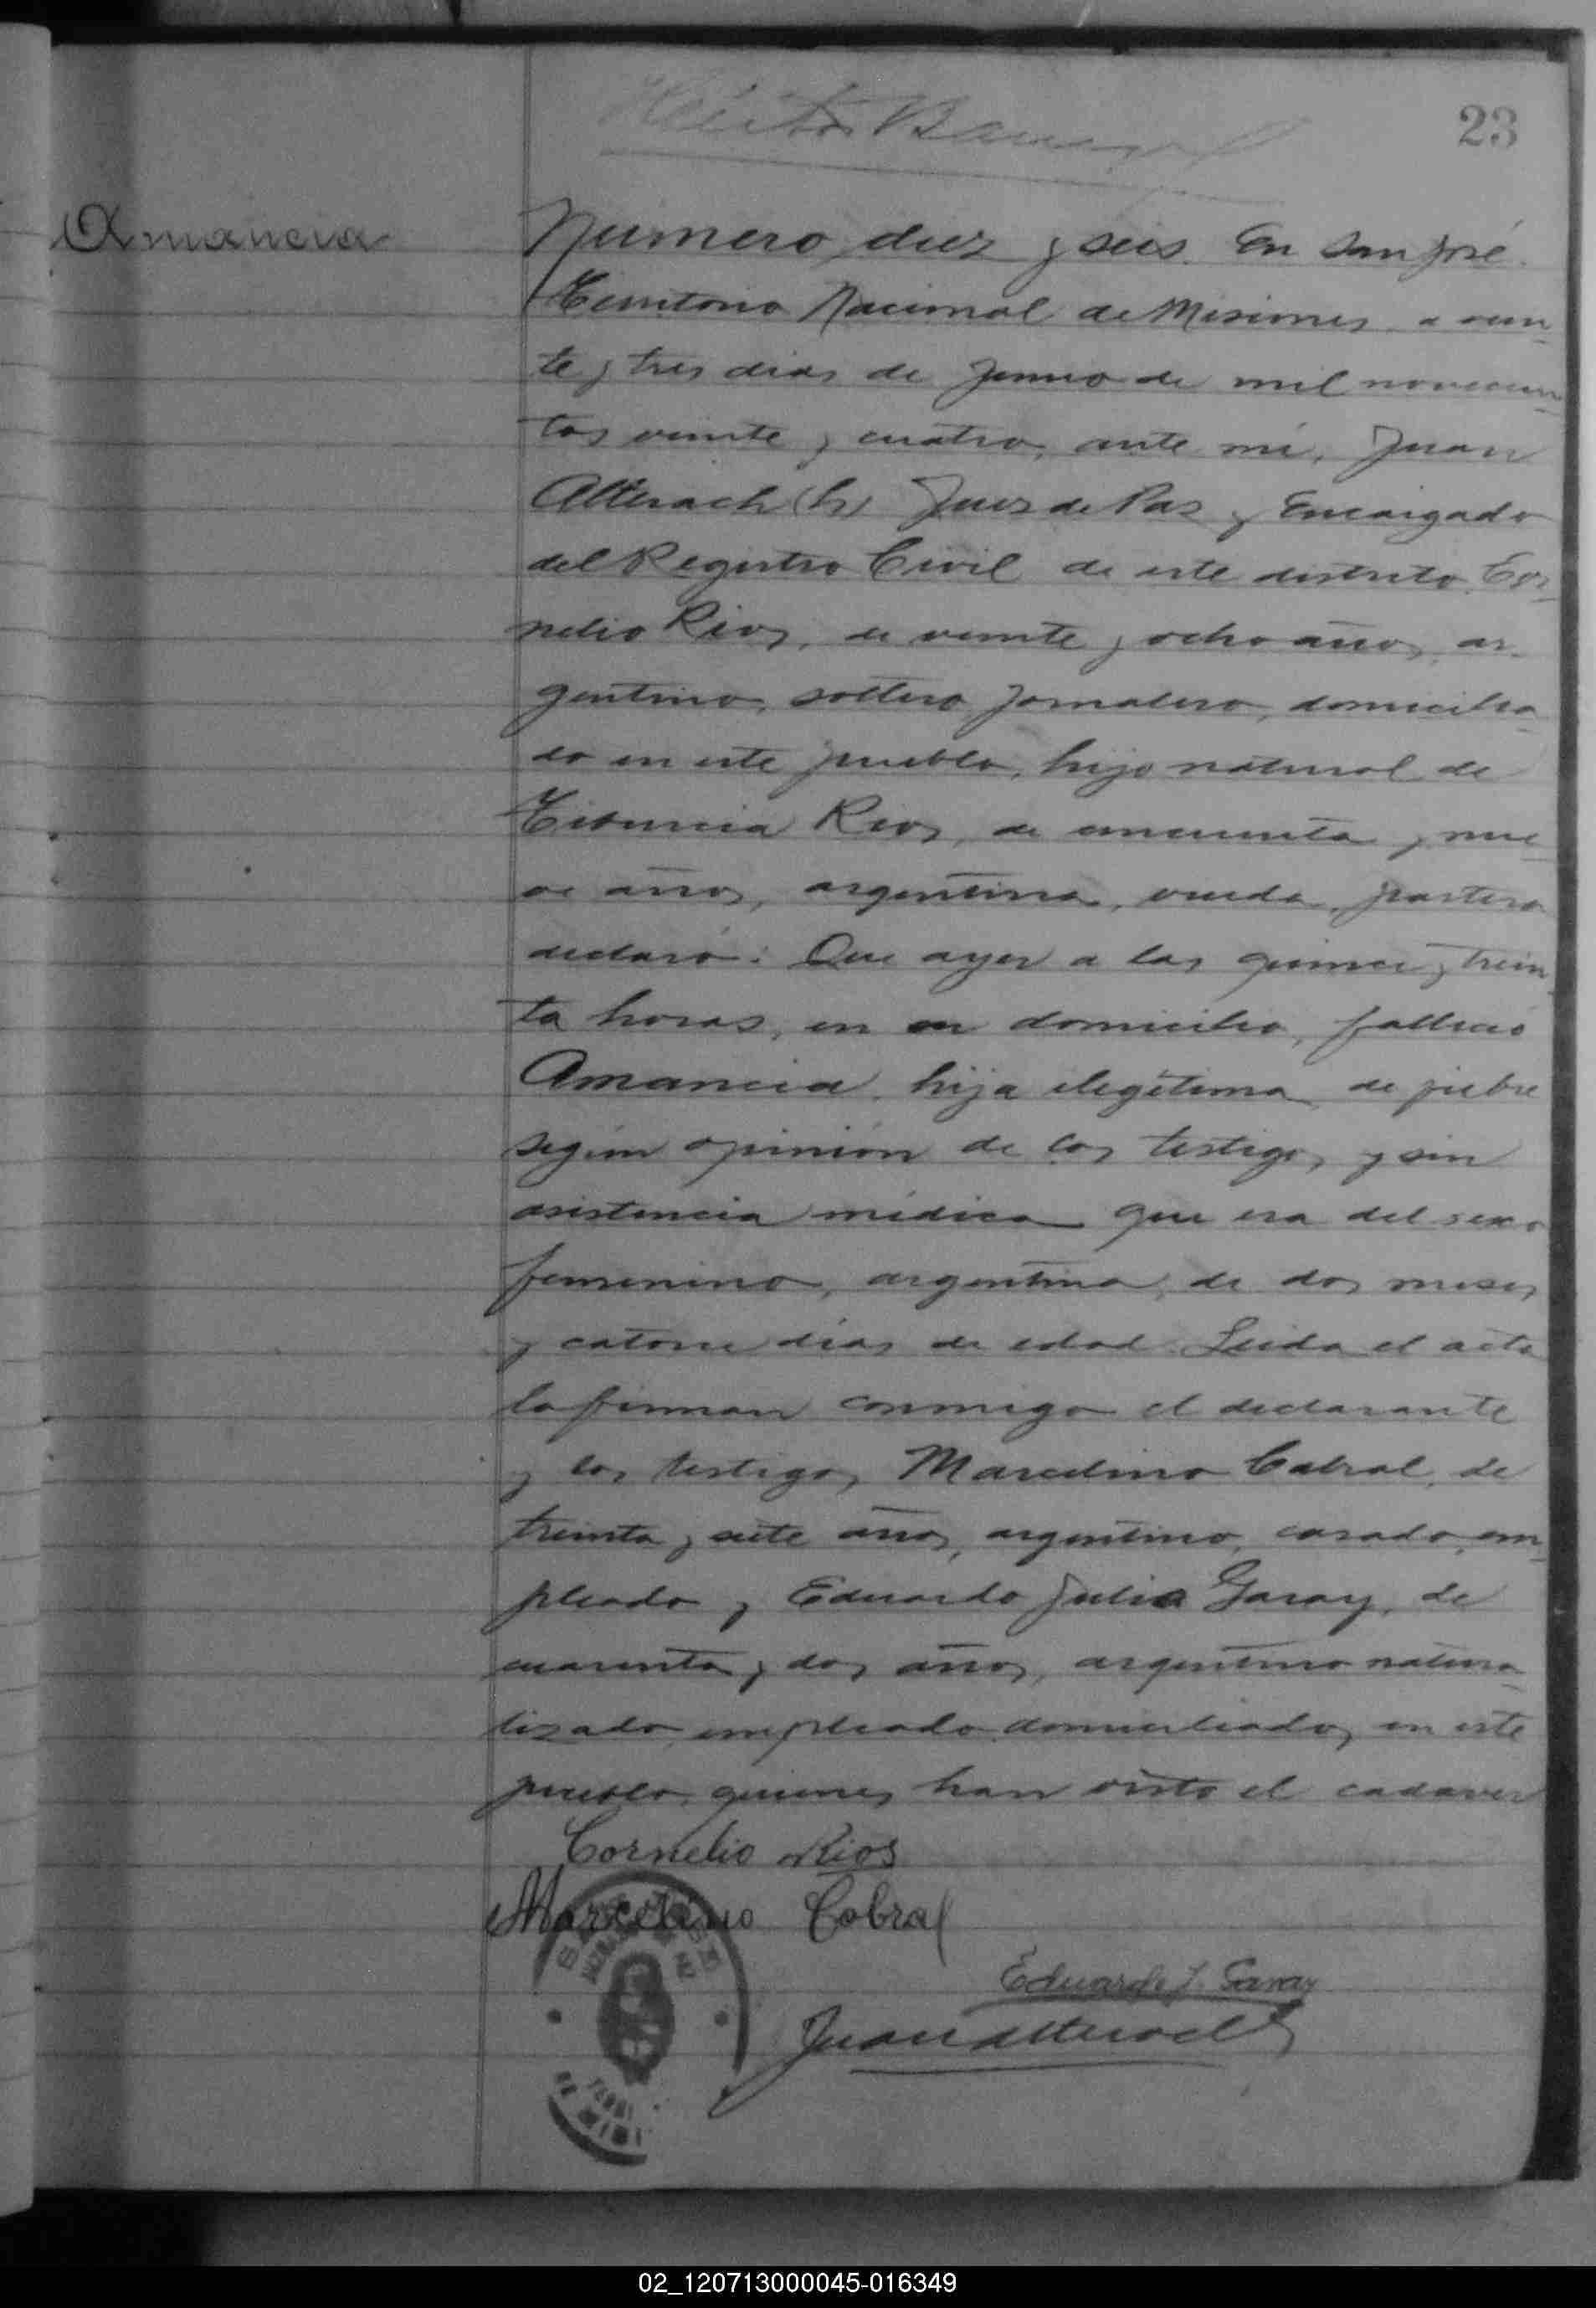 23
Amancia
Numero diez y seis. En San José.
Territorio Nacional de Misiones a vein-
te y tres dias de Junio de mil novecien-
tos veinte y cuatro, ante mi, Juan
Alterach (h) Juez de Paz y Encargado
del Registro Civil de este distrito Cor-
nelio Rios, de veinte y ocho años, ar-
gentino, soltero, jornalero, domicilia-
do en este pueblo, hijo natural de
Tiburcia Rios, de cincuenta y nue-
ve años, argentina, viuda, partera
declaró: Que ayer a las quince y trein-
ta horas, en su domicilio, falleció
Amancia, hija ilegitima, de fiebre
según opinión de los testigos y sin
asistencia médica que era del sexo
femenino, argentina, de dos meses
y catorce días de edad. Leida el acta
la firman conmigo el declarante
y los testigos, Marcelino Cabral, de
treinta y siete años, argentino, casado, em-
pleado y Eduardo Julio Garay, de
cuarenta y dos años, argentino natura-
lizado, empleado domiciliados en este
pueblo, quienes han visto el cadaver
Cornelio Rios
Marcelino Cabral
Eduardo J. Garay
Juan Alterach
02_120713000045-016349